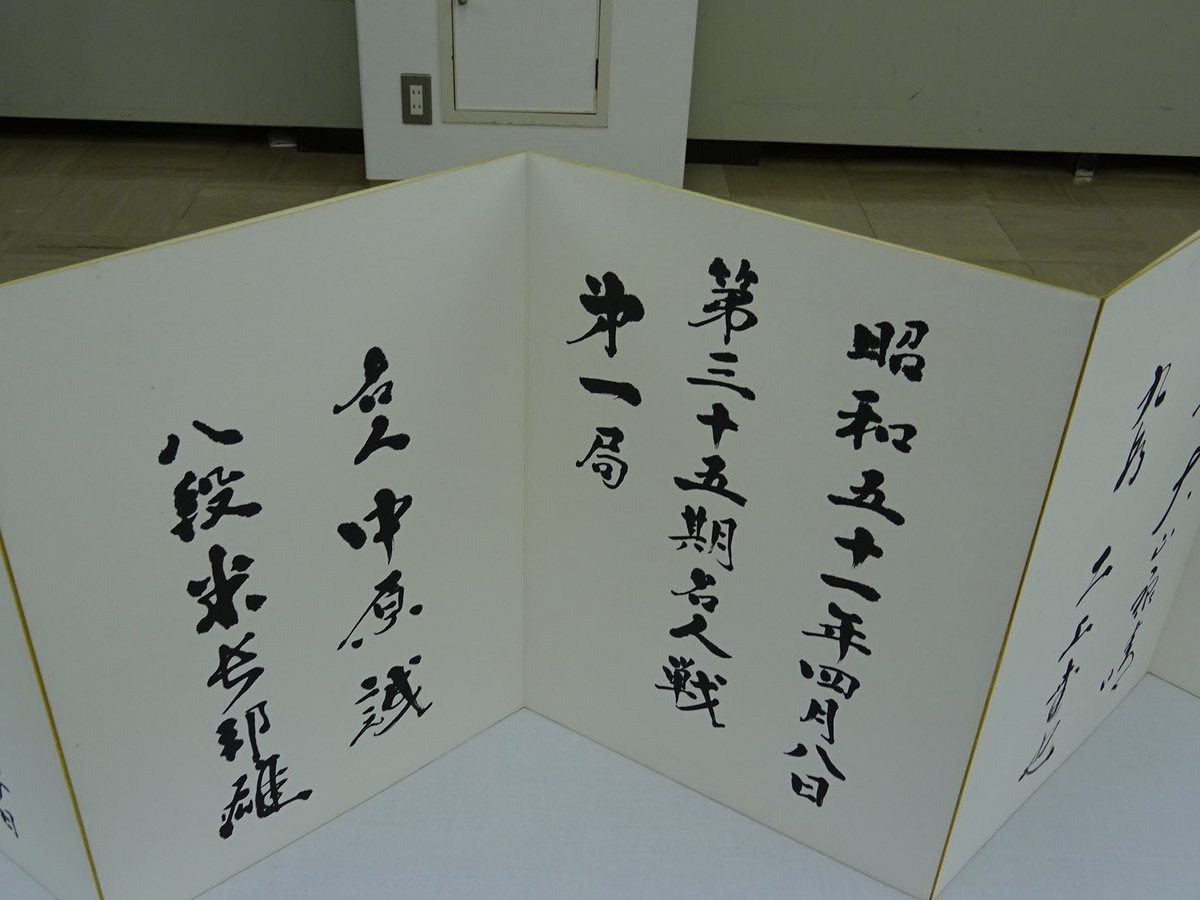 昭和五十一年四月八日
第三十五期名人戦
第一局
名人 中原誠
八段 米長邦雄